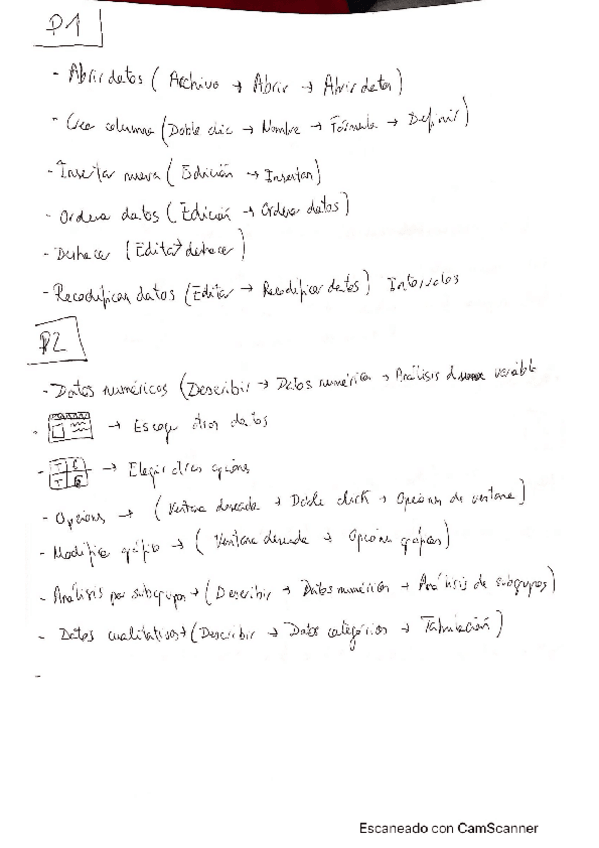 P1
- Abrir datos ( Archivo → Abrir → Abrir datos )
- Crea columna ( Doble clic → Nombre → Fórmula → Definir )
- Insertar nueva ( Edición → Insertar )
- Ordena datos ( Edición → Ordena datos )
- Deshacer ( Editar → deshacer )
- Recodificar datos ( Editar → Recodificar datos ) Intervalos
P2
- Datos numéricos ( Describir → Datos numéricos → Análisis variable
- → Escoge otros datos
- T G T G → Elegir otras opciones
- Opciones → ( Ventana deseada → Doble click → Opciones de ventana )
- Modifica gráfico → ( Ventana deseada → Opciones gráficas )
- Análisis por subgrupos → ( Describir → Datos numéricos → Análisis de subgrupos )
- Datos cualitativos → ( Describir → Datos categóricos → Tabulación )
-
Escaneado con CamScanner